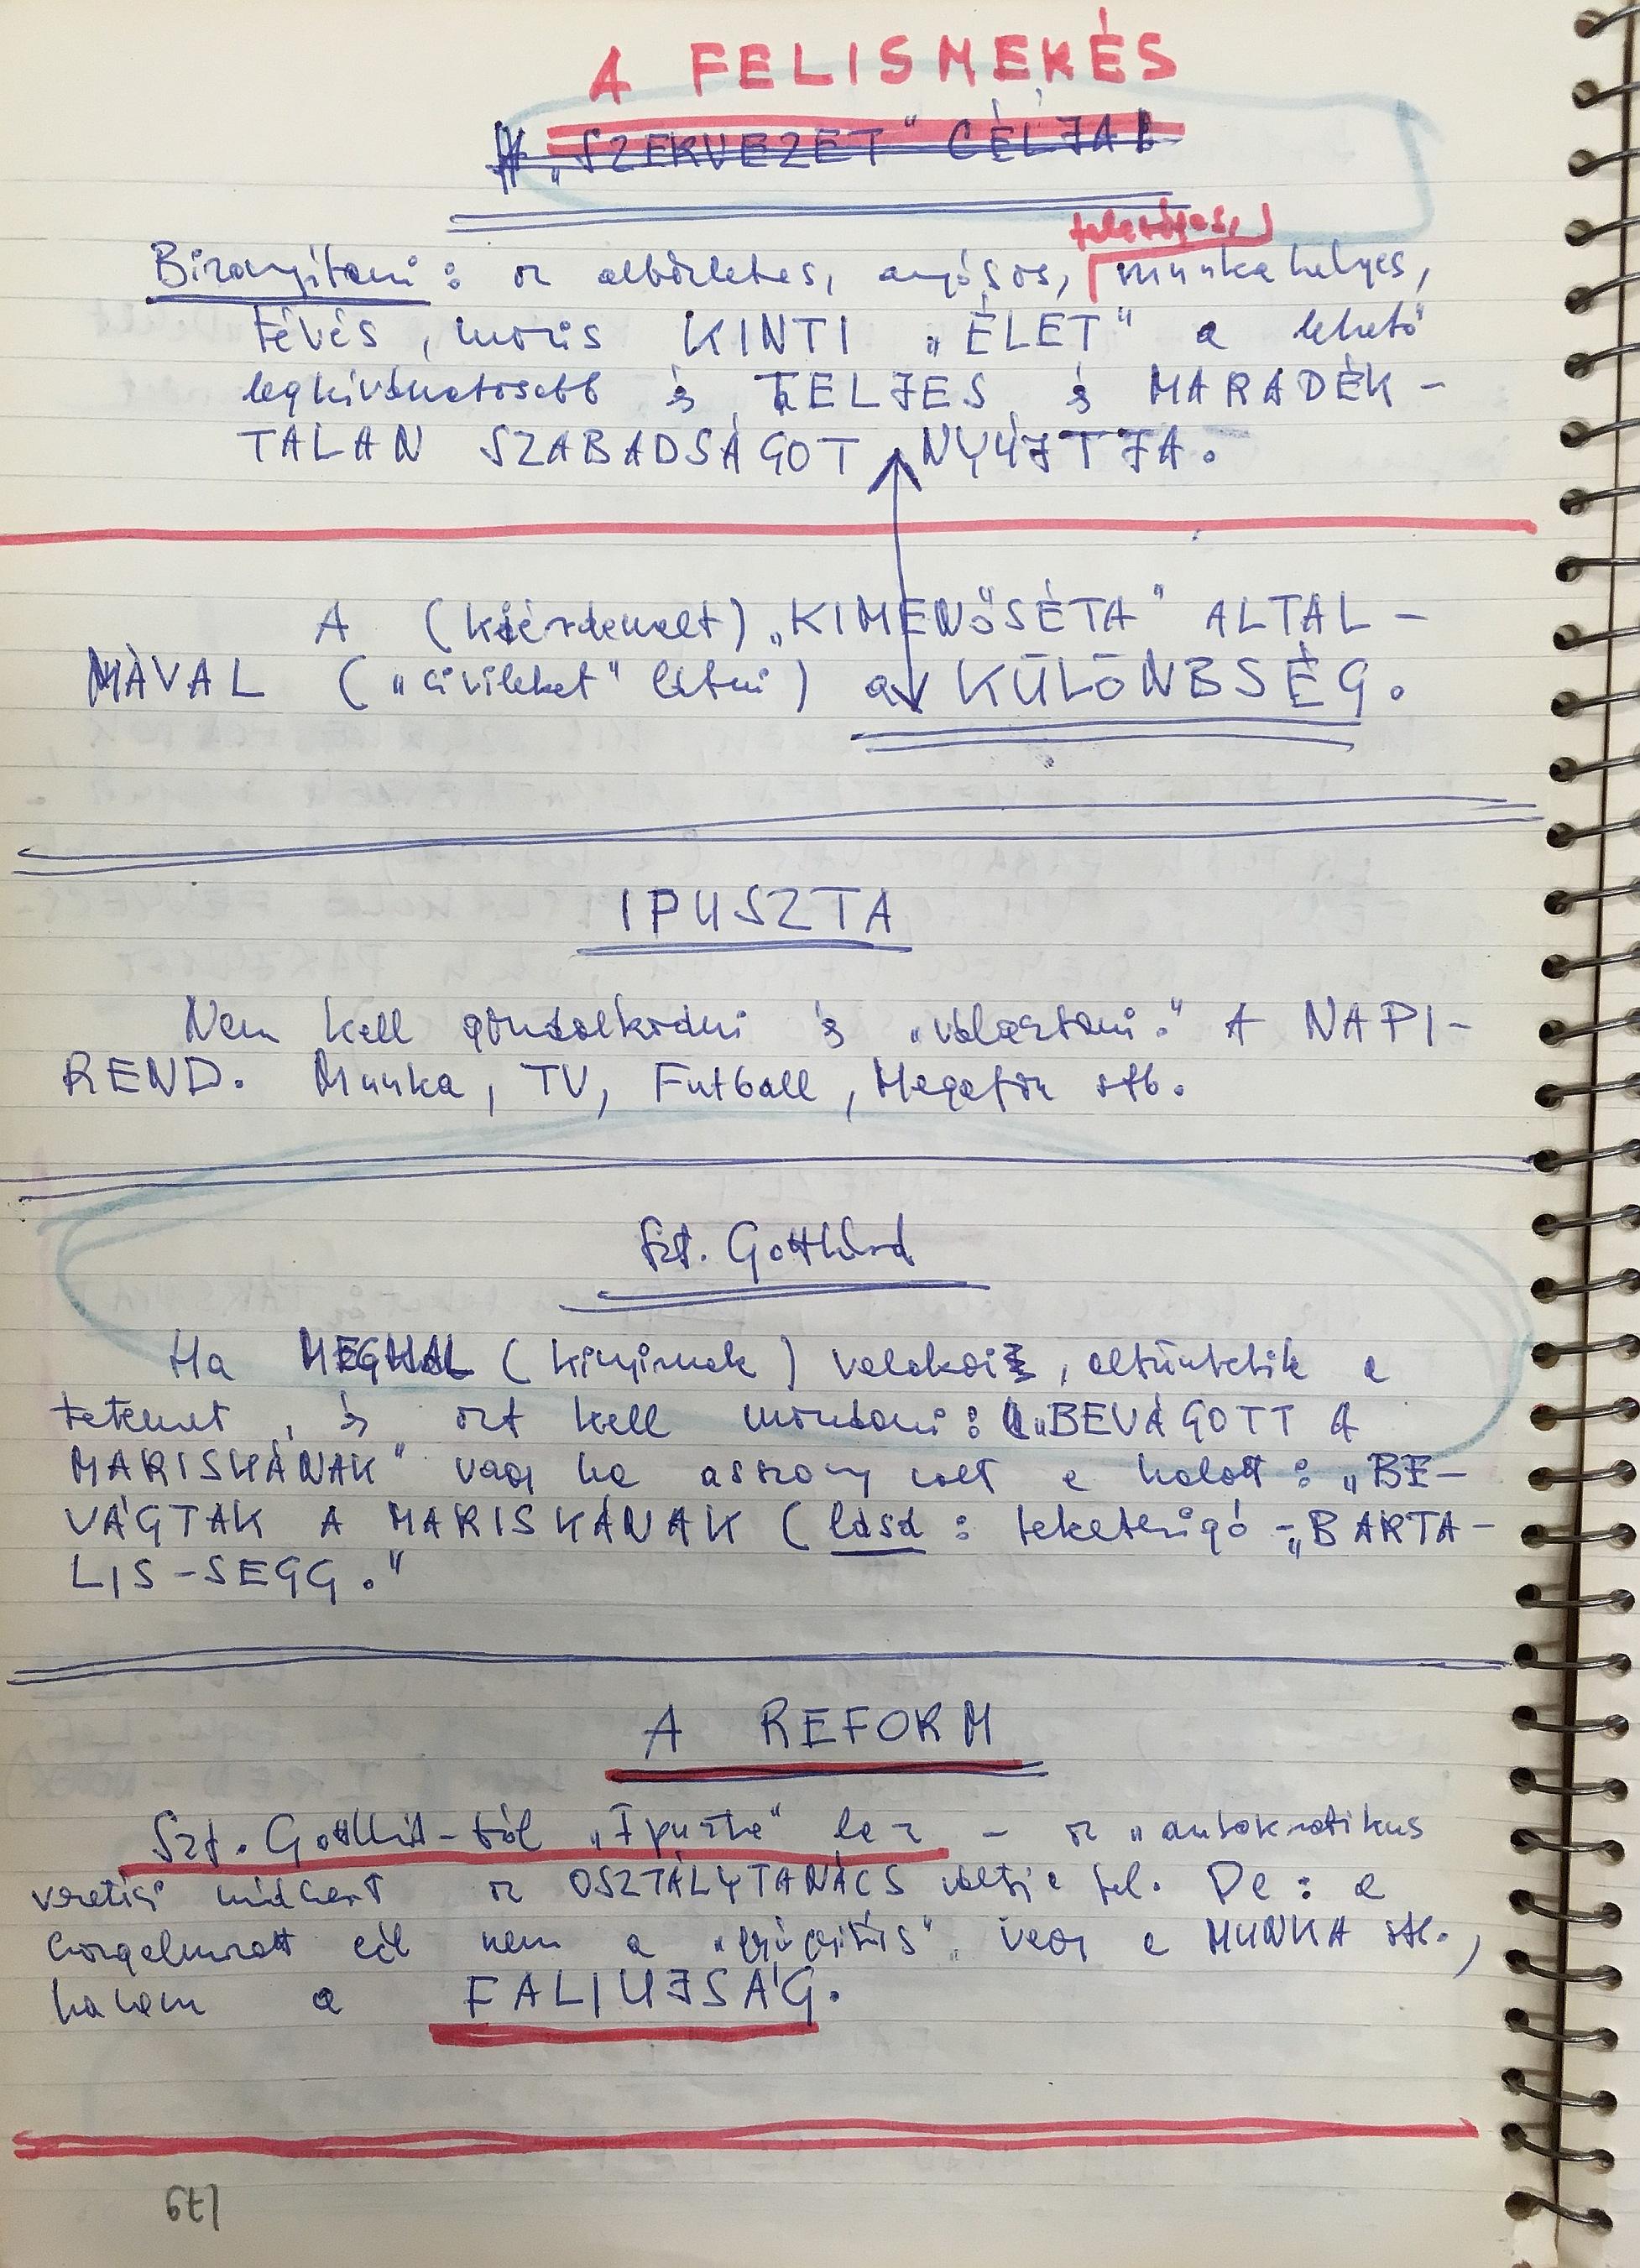 A FELISMERÉS
A „SZERVEZET" CÉLJAI
Bizonyítani: az albérletes, anyósos, munkahelyes,
tévés, mozis KINTI „ÉLET" a lehető
legkívánatosabb és TELJES és MARADÉK-
TALAN SZABADSÁGOT NYÚJTJA.
A (kiérdemelt) „KIMENŐSÉTA" ALTAL-
MÁVAL („civileket" látni) a KÜLÖNBSÉG.
IPUSZTA
Nem kell gondolkodni és „választani." A NAPI-
REND. Munka, TV, Futball, Megafon stb.
Szt. Gotthárd
Ha MEGHAL (kinyírnak) valakit, eltüntetik a
tetemet, és azt kell mondani: „BEVÁGOTT A
MARISKÁNAK" vagy ha asszony volt a halott: „BE-
VÁGTAK A MARISKÁNAK (lásd: feketerigó - „BARTA-
LIS-SEGG."
A REFORM
Szt. Gotthárd-ból „Ipuszta" lesz - az „autokratikus
vezetési módszert az OSZTÁLYTANÁCS váltja fel. De: a
hozgalmazott cél nem a „gyógyítás", vagy a MUNKA stb.,
hanem a FALIUJSÁG.
179